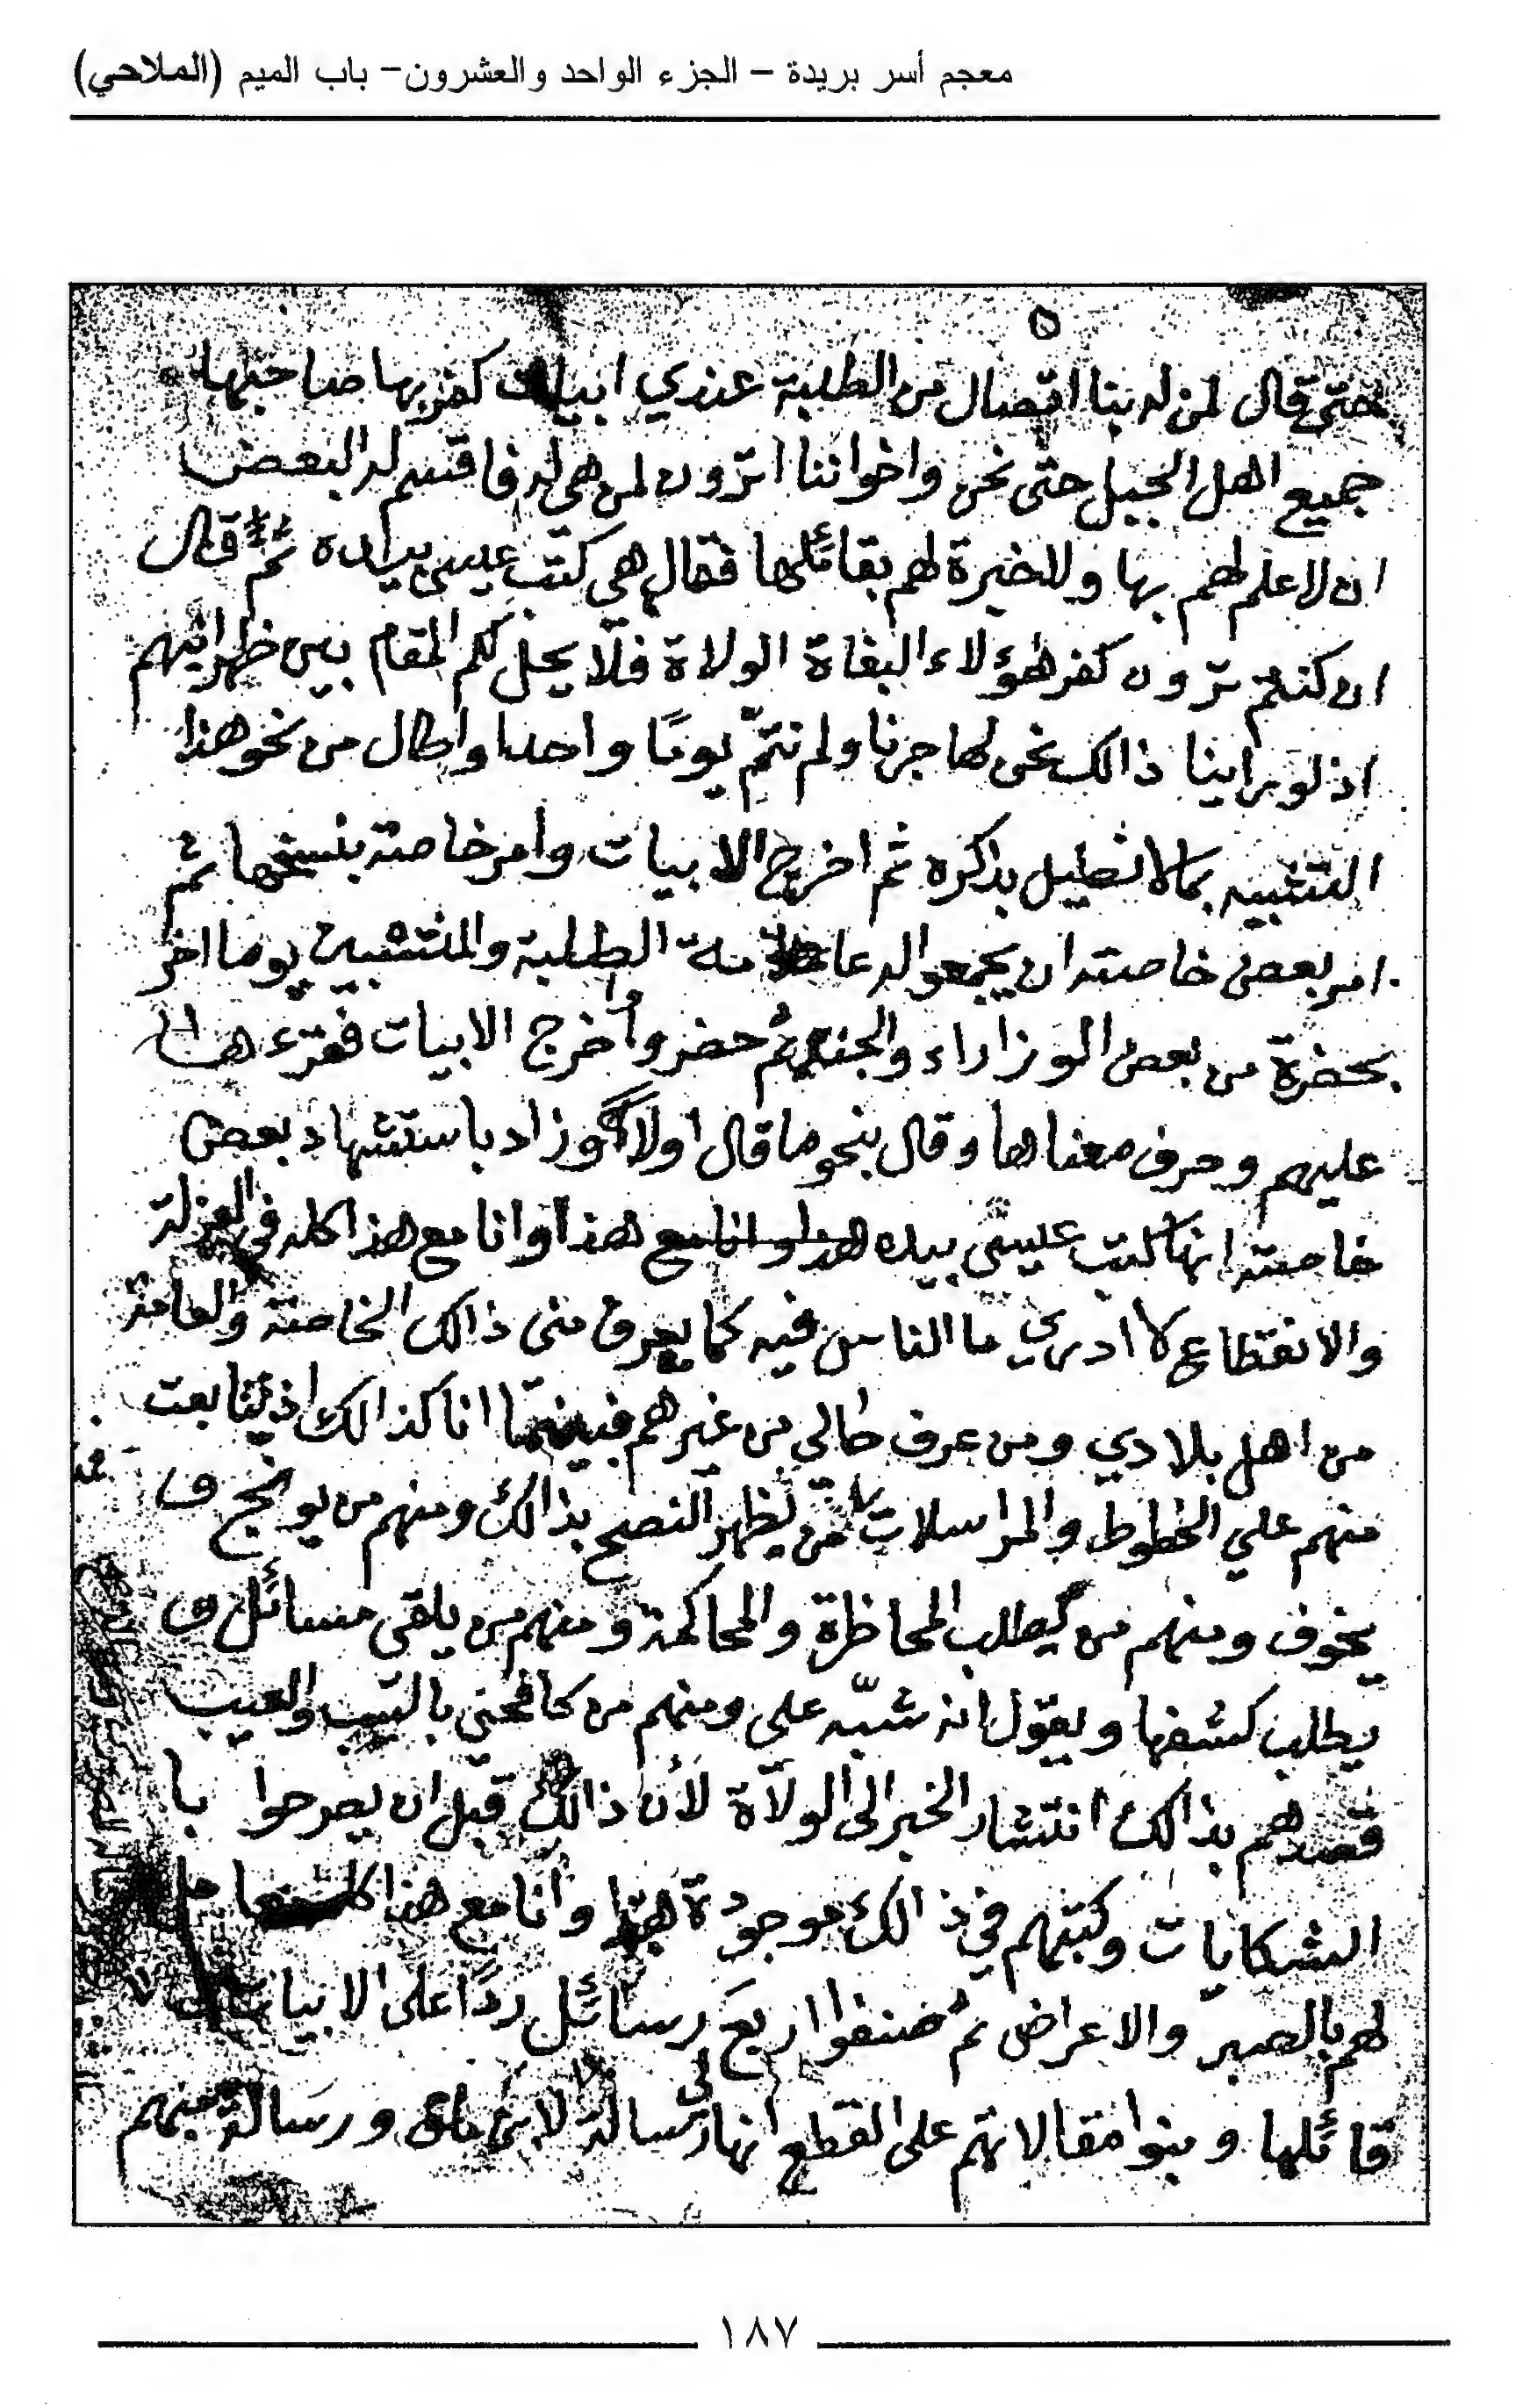 معجم أسر بريدة – الجزء الواحد والعشرون– باب الميم (الملاحي)
٥
حتى قال لمن له بنا اتصال من الطلبة عندي ابيات كفر بها صاحبها
جميع اهل الجبل حتى نحن واخواننا اترون لمن هي له فاقسم له البعض
ان لا علم لهم بها ولا خبرة لهم بقائلها فقال هي كتب عيسى بيده ثم قال
ان كنتم ترون كفر هؤلاء البغاة الولاة فلا يحل لكم المقام بين ظهرانيهم
اذ لو راينا ذالك نحن لهاجرنا ولم نتم يومًا واحدا واطال من نحو هذا
التشبيه بما لا نطيل بذكره ثم اخرج الابيات وامر خاصته بنسخها ثم
امر بعض خاصته ان يجمعوا له عامة الطلبة والمنتسبين يوما اخر
بحضرة من بعض الوزاراء والجند ثم حضر واخرج الابيات فقرءها
عليهم وحرف معناها وقال بنحو ما قال اولا وزاد باستشهاد بعض
خاصته انها كتب عيسى بيده هذا وانا مع هذا وانا مع هذا كله في العزلة
والانقطاع لا ادري ما الناس فيه كما يعرف مني ذالك الخاصة والعامة
من اهل بلادي ومن عرف حالي من غيرهم فبينما انا كذالك اذ تتابعت
منهم علي الخطوط والمراسلات من يظهر النصح بذالك ومنهم من يوبخ و
يخوف ومنهم من يطلب المحاظرة والمحاكمة ومنهم من يلقي مسائل و
يطلب كشفها ويقول انه شبّه على ومنهم من كافحني بالسب والعيب
قصدهم بذالك انتشار الخبر الى الولاة لأن ذالك قبل ان يصرحوا با
الشكايات وكتبهم في ذالك موجودة هذا وانا مع هذا كله
لهم بالصبر والاعراض ثم صنفوا اربع رسائل ردًا على الابيات
قائلها وبنوا مقالاتهم على القطع انها لي رسالة لابن ورسالة منهم
١٨٧